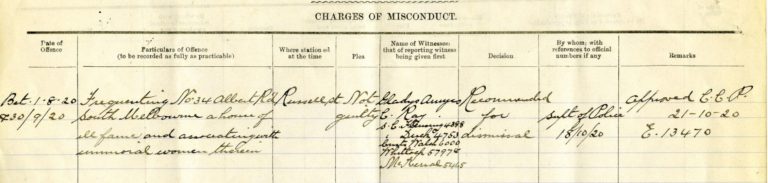 CHARGES OF MISCONDUCT.
Date of Offence
Particulars of Offence
(to be recorded as fully as practicable)
Where stationed at the time
Plea
Name of Witnesses: that of reporting witness being given first
Decision
By whom; with references to official numbers if any
Remarks
Bet. 1-8-20
& 30/9/20
Frequenting No 34 Albert Rd
South Melbourne a house of
ill fame and associating with
immoral women therein
Russell St
Not
guilty
Gladys
C. Ray
S.C. 4388
4753
Const Walsh 6000
Whittock 5797
McKerral 5465
Recommended
for
dismissal
Supt of Police
15/10/20
Approved C.C.P.
21-10-20
E. 13470